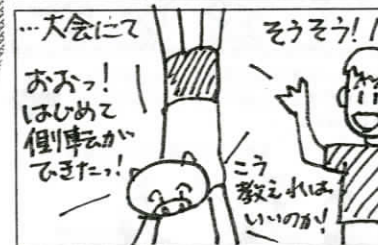 …大会にて
そうそう!!
おおっ!
はじめて
側転が
できたっ!
こう
教えれば
いいのか!